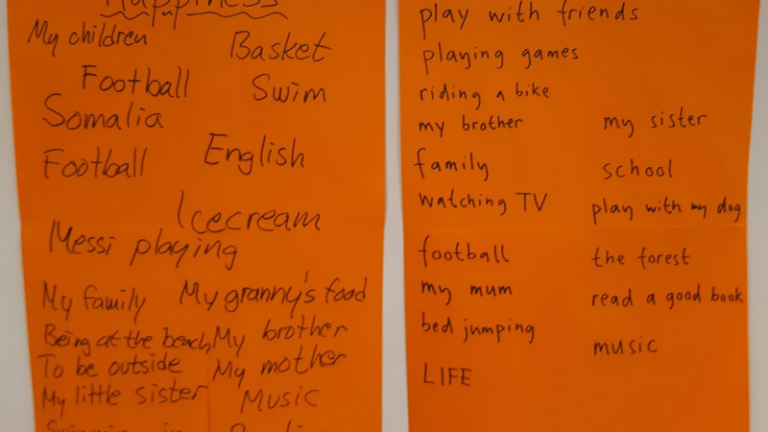 Happiness
My children
Basket
Football
Swim
Somalia
Football
English
Icecream
Messi playing
My family
My granny's food
Being at the beach
My brother
To be outside
My mother
My little sister
Music
play with friends
playing games
riding a bike
my brother
my sister
family
school
watching TV
play with my dog
football
the forest
my mum
read a good book
bed jumping
music
LIFE